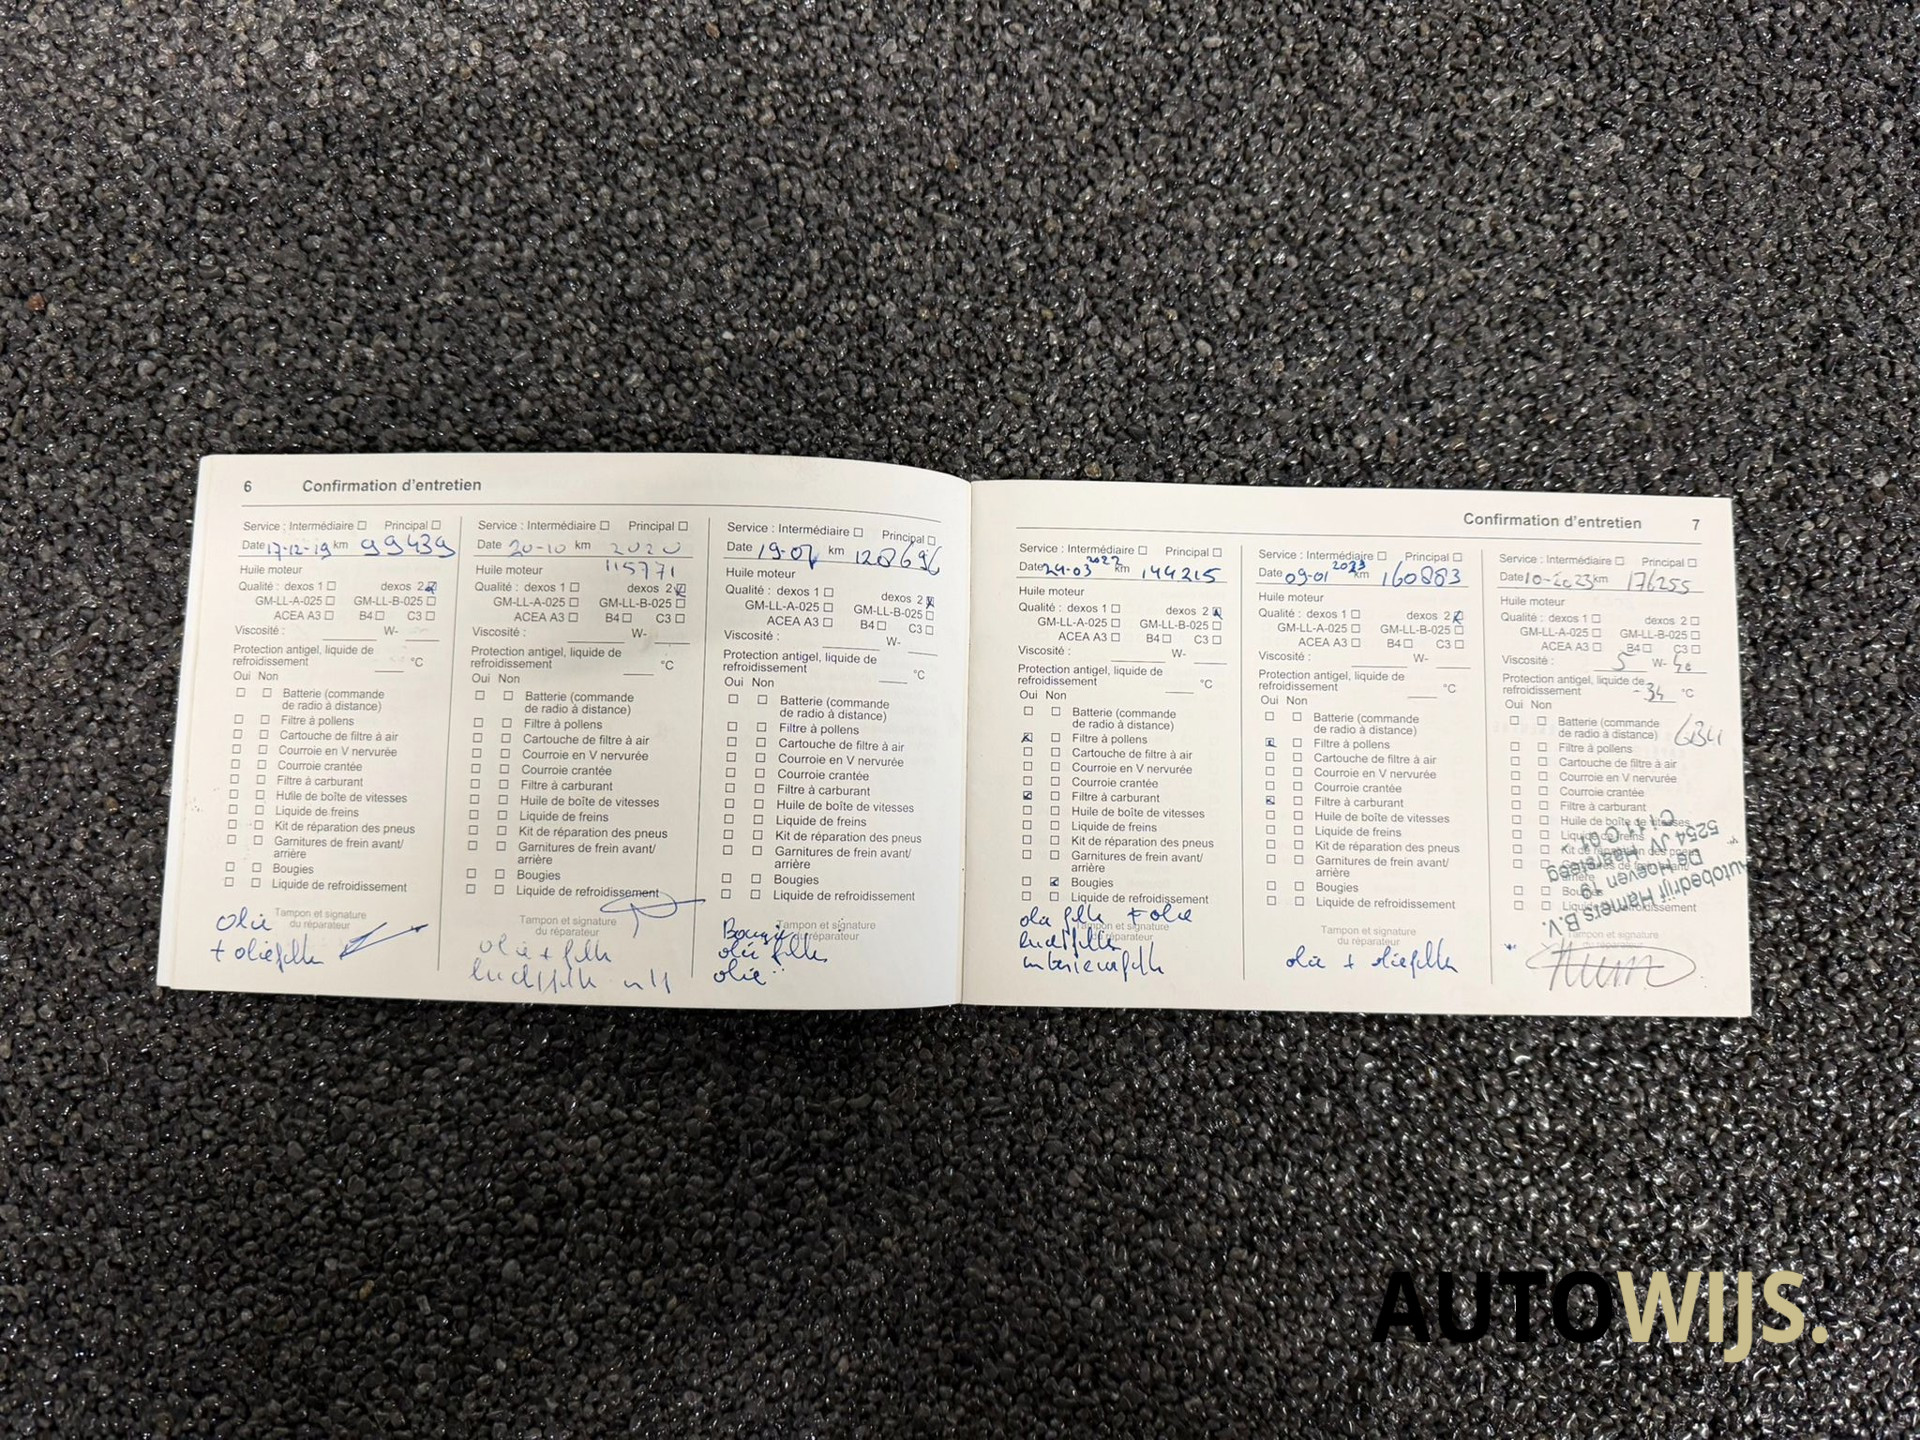 6 Confirmation d'entretien
Service : Intermédiaire ☐ Principal ☐
Date 17-12-19 km 99439
Huile moteur
Qualité : dexos 1 ☐ dexos 2 ☑
GM-LL-A-025 ☐ GM-LL-B-025 ☐
ACEA A3 ☐ B4 ☐ C3 ☐
Viscosité : W-
Protection antigel, liquide de
refroidissement °C
Oui Non
☐ ☐ Batterie (commande
de radio à distance)
☐ ☐ Filtre à pollens
☐ ☐ Cartouche de filtre à air
☐ ☐ Courroie en V nervurée
☐ ☐ Courroie crantée
☐ ☐ Filtre à carburant
☐ ☐ Huile de boîte de vitesses
☐ ☐ Liquide de freins
☐ ☐ Kit de réparation des pneus
☐ ☐ Garnitures de frein avant/
arrière
☐ ☐ Bougies
☐ ☐ Liquide de refroidissement
Tampon et signature
du réparateur
olie
+ oliefilter
Service : Intermédiaire ☐ Principal ☐
Date 20-10 km 2020
115771
Huile moteur
Qualité : dexos 1 ☐ dexos 2 ☑
GM-LL-A-025 ☐ GM-LL-B-025 ☐
ACEA A3 ☐ B4 ☐ C3 ☐
Viscosité : W-
Protection antigel, liquide de
refroidissement °C
Oui Non
☐ ☐ Batterie (commande
de radio à distance)
☐ ☐ Filtre à pollens
☐ ☐ Cartouche de filtre à air
☐ ☐ Courroie en V nervurée
☐ ☐ Courroie crantée
☐ ☐ Filtre à carburant
☐ ☐ Huile de boîte de vitesses
☐ ☐ Liquide de freins
☐ ☐ Kit de réparation des pneus
☐ ☐ Garnitures de frein avant/
arrière
☐ ☐ Bougies
☐ ☐ Liquide de refroidissement
Tampon et signature
du réparateur
olie + filter
luchtfilter
Service : Intermédiaire ☐ Principal ☐
Date 19-07 km 128696
Huile moteur
Qualité : dexos 1 ☐ dexos 2 ☒
GM-LL-A-025 ☐ GM-LL-B-025 ☐
ACEA A3 ☐ B4 ☐ C3 ☐
Viscosité : W-
Protection antigel, liquide de
refroidissement °C
Oui Non
☐ ☐ Batterie (commande
de radio à distance)
☐ ☐ Filtre à pollens
☐ ☐ Cartouche de filtre à air
☐ ☐ Courroie en V nervurée
☐ ☐ Courroie crantée
☐ ☐ Filtre à carburant
☐ ☐ Huile de boîte de vitesses
☐ ☐ Liquide de freins
☐ ☐ Kit de réparation des pneus
☐ ☐ Garnitures de frein avant/
arrière
☐ ☐ Bougies
☐ ☐ Liquide de refroidissement
Tampon et signature
du réparateur
Bougie
olie filter
olie
Confirmation d'entretien 7
Service : Intermédiaire ☐ Principal ☐
Date 24-03 2022 km 144215
Huile moteur
Qualité : dexos 1 ☐ dexos 2 ☒
GM-LL-A-025 ☐ GM-LL-B-025 ☐
ACEA A3 ☐ B4 ☐ C3 ☐
Viscosité : W-
Protection antigel, liquide de
refroidissement °C
Oui Non
☐ ☐ Batterie (commande
de radio à distance)
☒ ☐ Filtre à pollens
☐ ☐ Cartouche de filtre à air
☐ ☐ Courroie en V nervurée
☐ ☐ Courroie crantée
☑ ☐ Filtre à carburant
☐ ☐ Huile de boîte de vitesses
☐ ☐ Liquide de freins
☐ ☐ Kit de réparation des pneus
☐ ☐ Garnitures de frein avant/
arrière
☐ ☑ Bougies
☐ ☐ Liquide de refroidissement
Tampon et signature
du réparateur
olie filter + olie
luchtfilter
interieurfilter
Service : Intermédiaire ☐ Principal ☐
Date 09-01 2023 km 160883
Huile moteur
Qualité : dexos 1 ☐ dexos 2 ☒
GM-LL-A-025 ☐ GM-LL-B-025 ☐
ACEA A3 ☐ B4 ☐ C3 ☐
Viscosité : W-
Protection antigel, liquide de
refroidissement °C
Oui Non
☐ ☐ Batterie (commande
de radio à distance)
☒ ☐ Filtre à pollens
☐ ☐ Cartouche de filtre à air
☐ ☐ Courroie en V nervurée
☐ ☐ Courroie crantée
☑ ☐ Filtre à carburant
☐ ☐ Huile de boîte de vitesses
☐ ☐ Liquide de freins
☐ ☐ Kit de réparation des pneus
☐ ☐ Garnitures de frein avant/
arrière
☐ ☐ Bougies
☐ ☐ Liquide de refroidissement
Tampon et signature
du réparateur
olie + oliefilter
Service : Intermédiaire ☐ Principal ☐
Date 10-2023 km 176255
Huile moteur
Qualité : dexos 1 ☐ dexos 2 ☐
GM-LL-A-025 ☐ GM-LL-B-025 ☐
ACEA A3 ☐ B4 ☐ C3 ☐
Viscosité : 5 W- 40
Protection antigel, liquide de
refroidissement -34 °C
Oui Non
☐ ☐ Batterie (commande
de radio à distance)
☐ ☐ Filtre à pollens
☐ ☐ Cartouche de filtre à air
☐ ☐ Courroie en V nervurée
☐ ☐ Courroie crantée
☐ ☐ Filtre à carburant
☐ ☐ Huile de boîte de vitesses
☐ ☐ Liquide de freins
☐ ☐ Kit de réparation des pneus
☐ ☐ Garnitures de frein avant/
arrière
☐ ☐ Bougies
☐ ☐ Liquide de refroidissement
Tampon et signature
du réparateur
Autobedrijf Hamers B.V.
De Hoeven 19
5254 JV Haarsteeg
AUTOWIJS.